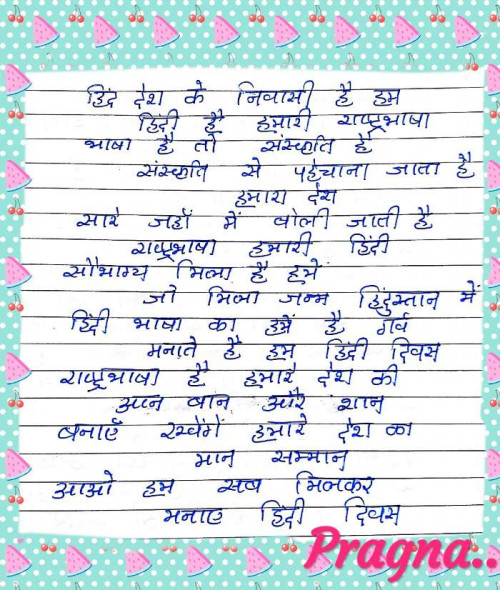 हिंद देश के निवासी है हम
हिंदी है हमारी राष्ट्रभाषा
भाषा है तो संस्कृति है
संस्कृति से पहेचाना जाता है
हमारा देश
सारे जहाँ में बोली जाती है
राष्ट्रभाषा हमारी हिंदी
सौभाग्य मिला है हमें
जो मिला जन्म हिंदुस्तान में
हिंदी भाषा का हमें है गर्व
मनाते है हम हिंदी दिवस
राष्ट्रभाषा है हमारे देश की
आन बान और शान
बनाएँ रखेंगें हमारे देश का
मान सम्मान
आओ हम सब मिलकर
मनाए हिंदी दिवस
Pragna..